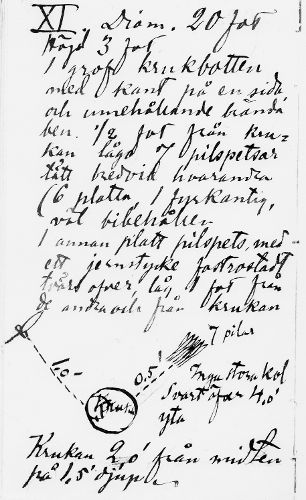 XI. Diam. 20 fot
Höjd 3 fot
1 grof krukbotten
med kant på en sida
och innehållande brända
ben. 1/2 fot från kru-
kan lågo 7 pilspetsar
tätt bredvid hvarandra
(6 platta, 1 fyrkantig,
väl bibehållen
1 annan platt pilspets, med
ett jernstycke fastrostadt
tvärs öfver låg 1 fot från
de andra och från krukan
7 pilar
1,0
0.5'
Inga stora kol
Svart öfver 4,0'
yta
Kruka
Krukan 2,0' från midten
på 1,5' djup.